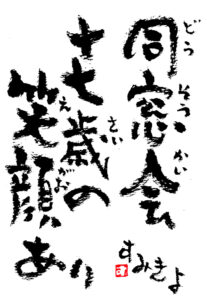 同窓会
どうそうかい
十七歳の
さい
笑顔あり
えがお
すみきよ
す